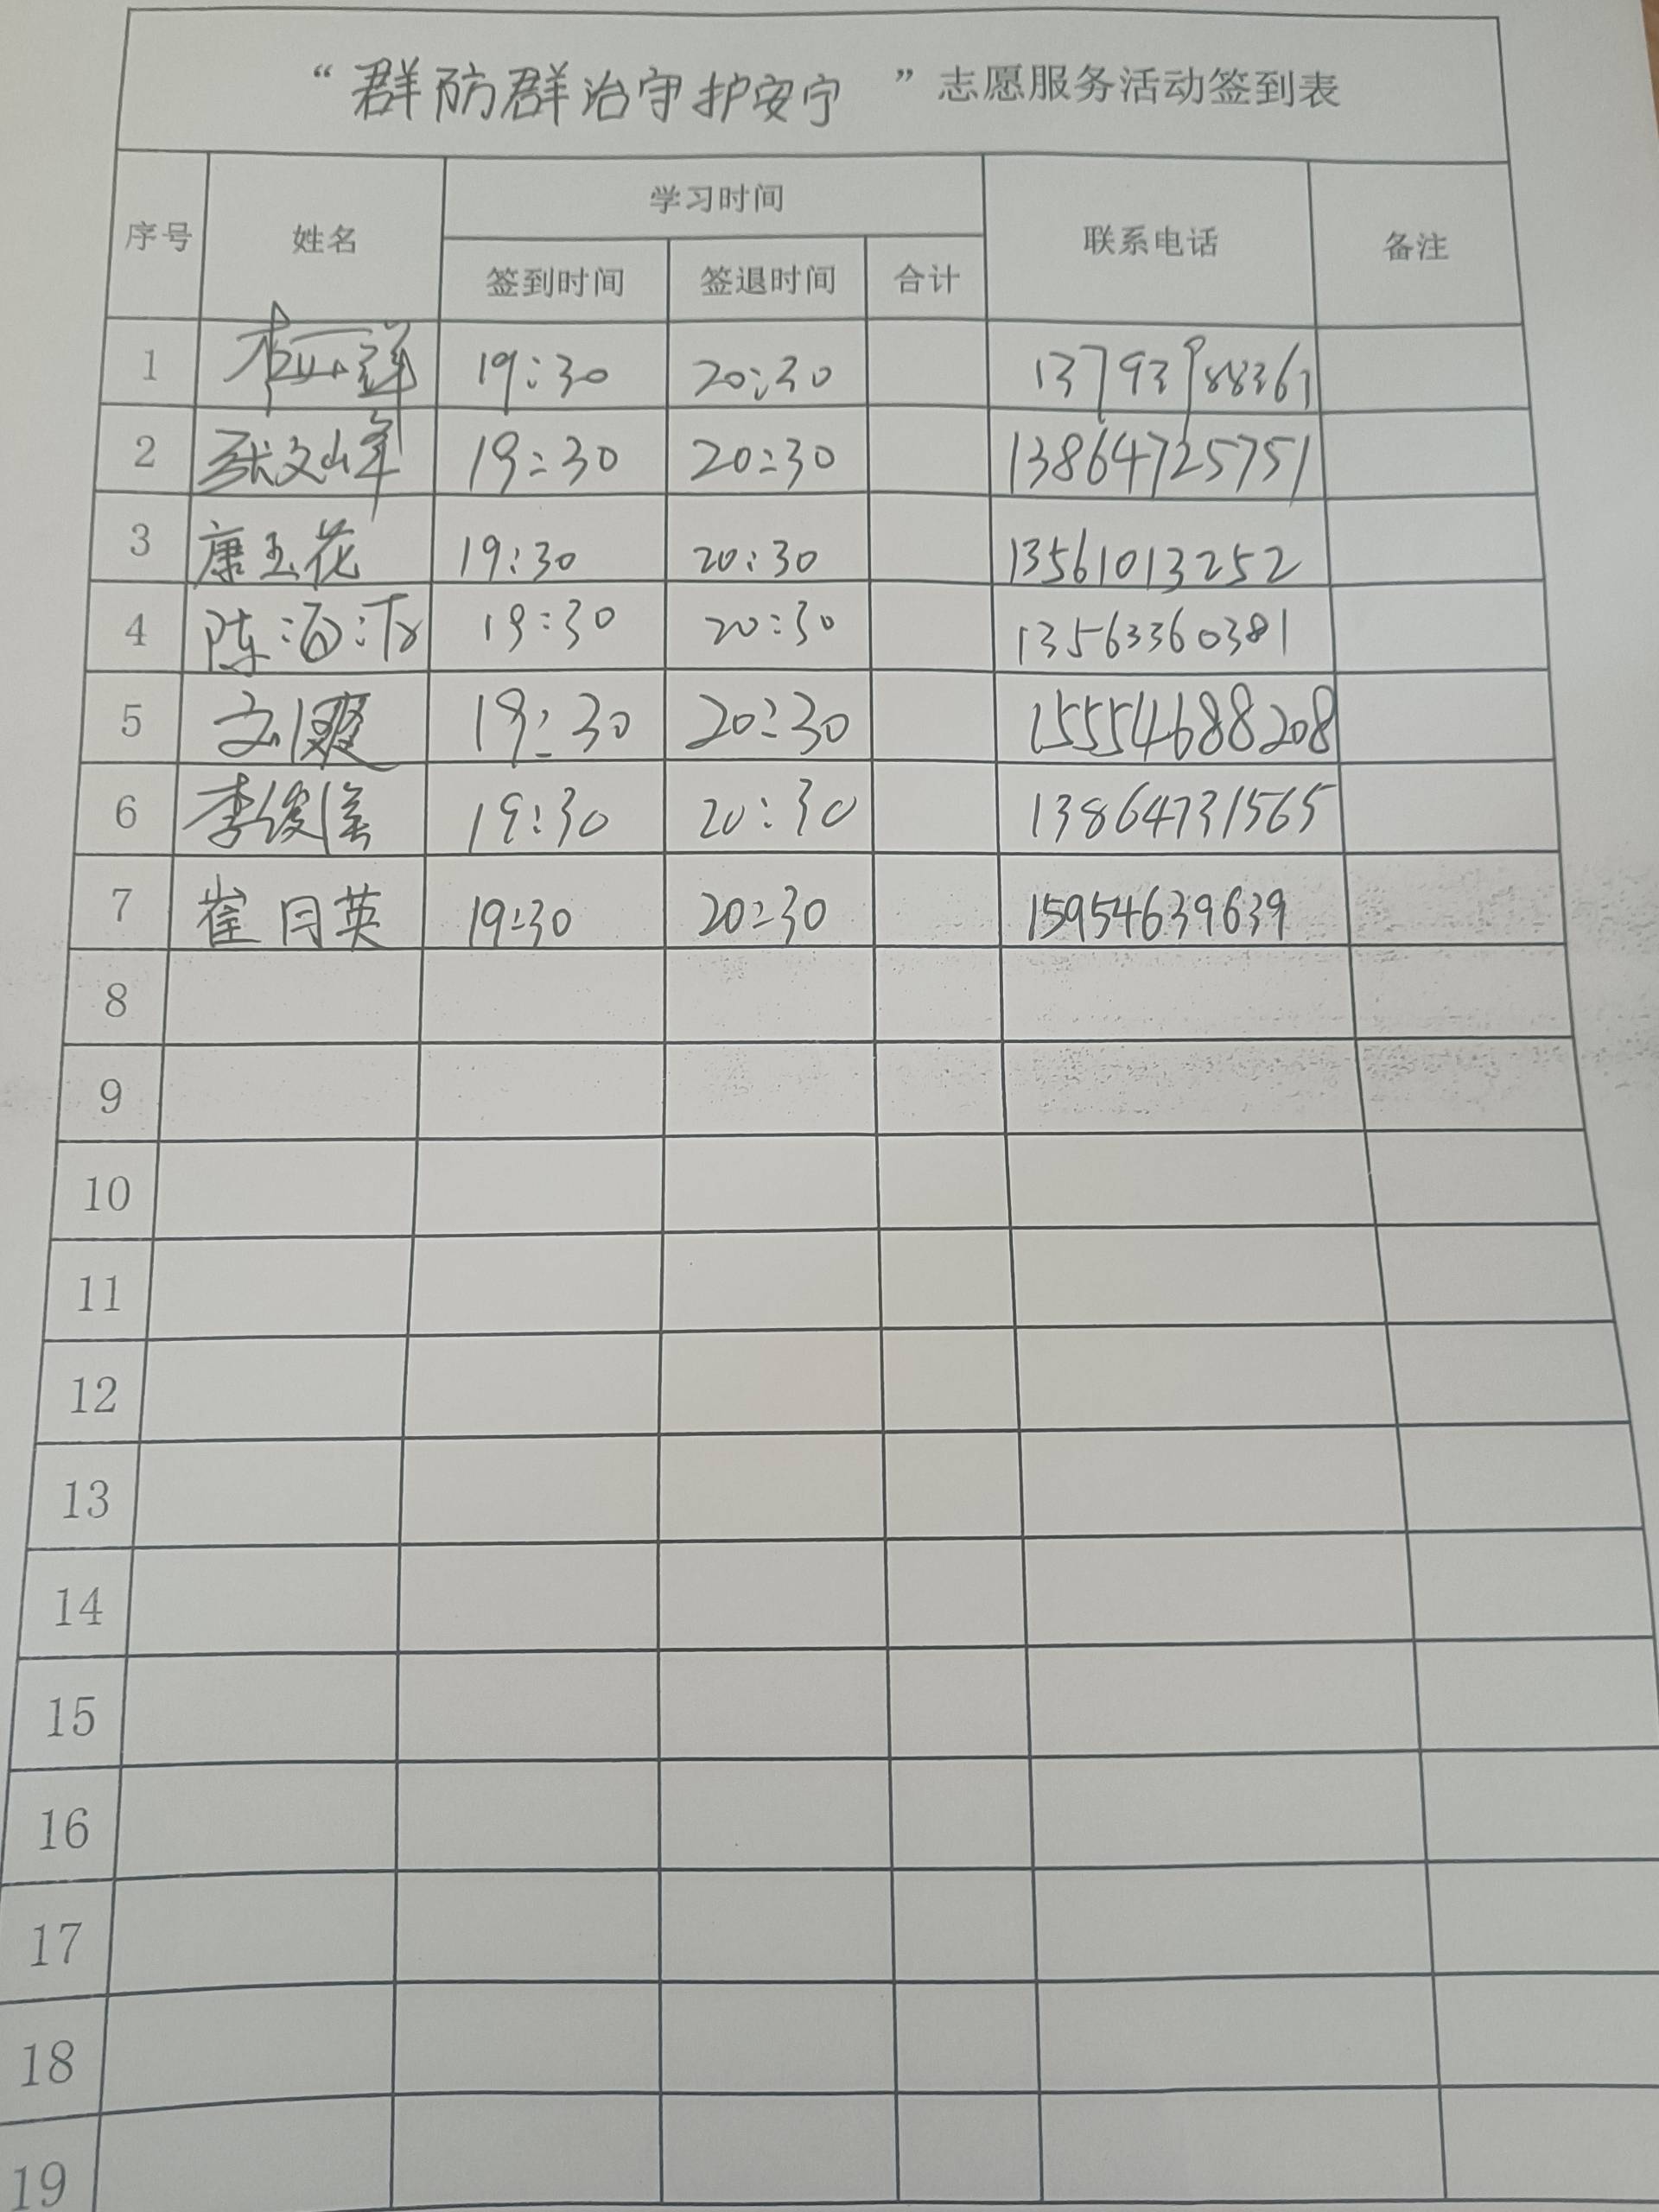 “群防群治守护安宁”志愿服务活动签到表
序号 姓名 学习时间 联系电话 备注
签到时间 签退时间 合计
1 19:30 20:30 13793988361
2 张文峰 19:30 20:30 13864725751
3 康玉花 19:30 20:30 13561013252
4 陈 19:30 20:30 13563360381
5 刘爽 19:30 20:30 15554688208
6 李俊 19:30 20:30 13864731565
7 崔月英 19:30 20:30 15954639639
8
9
10
11
12
13
14
15
16
17
18
19